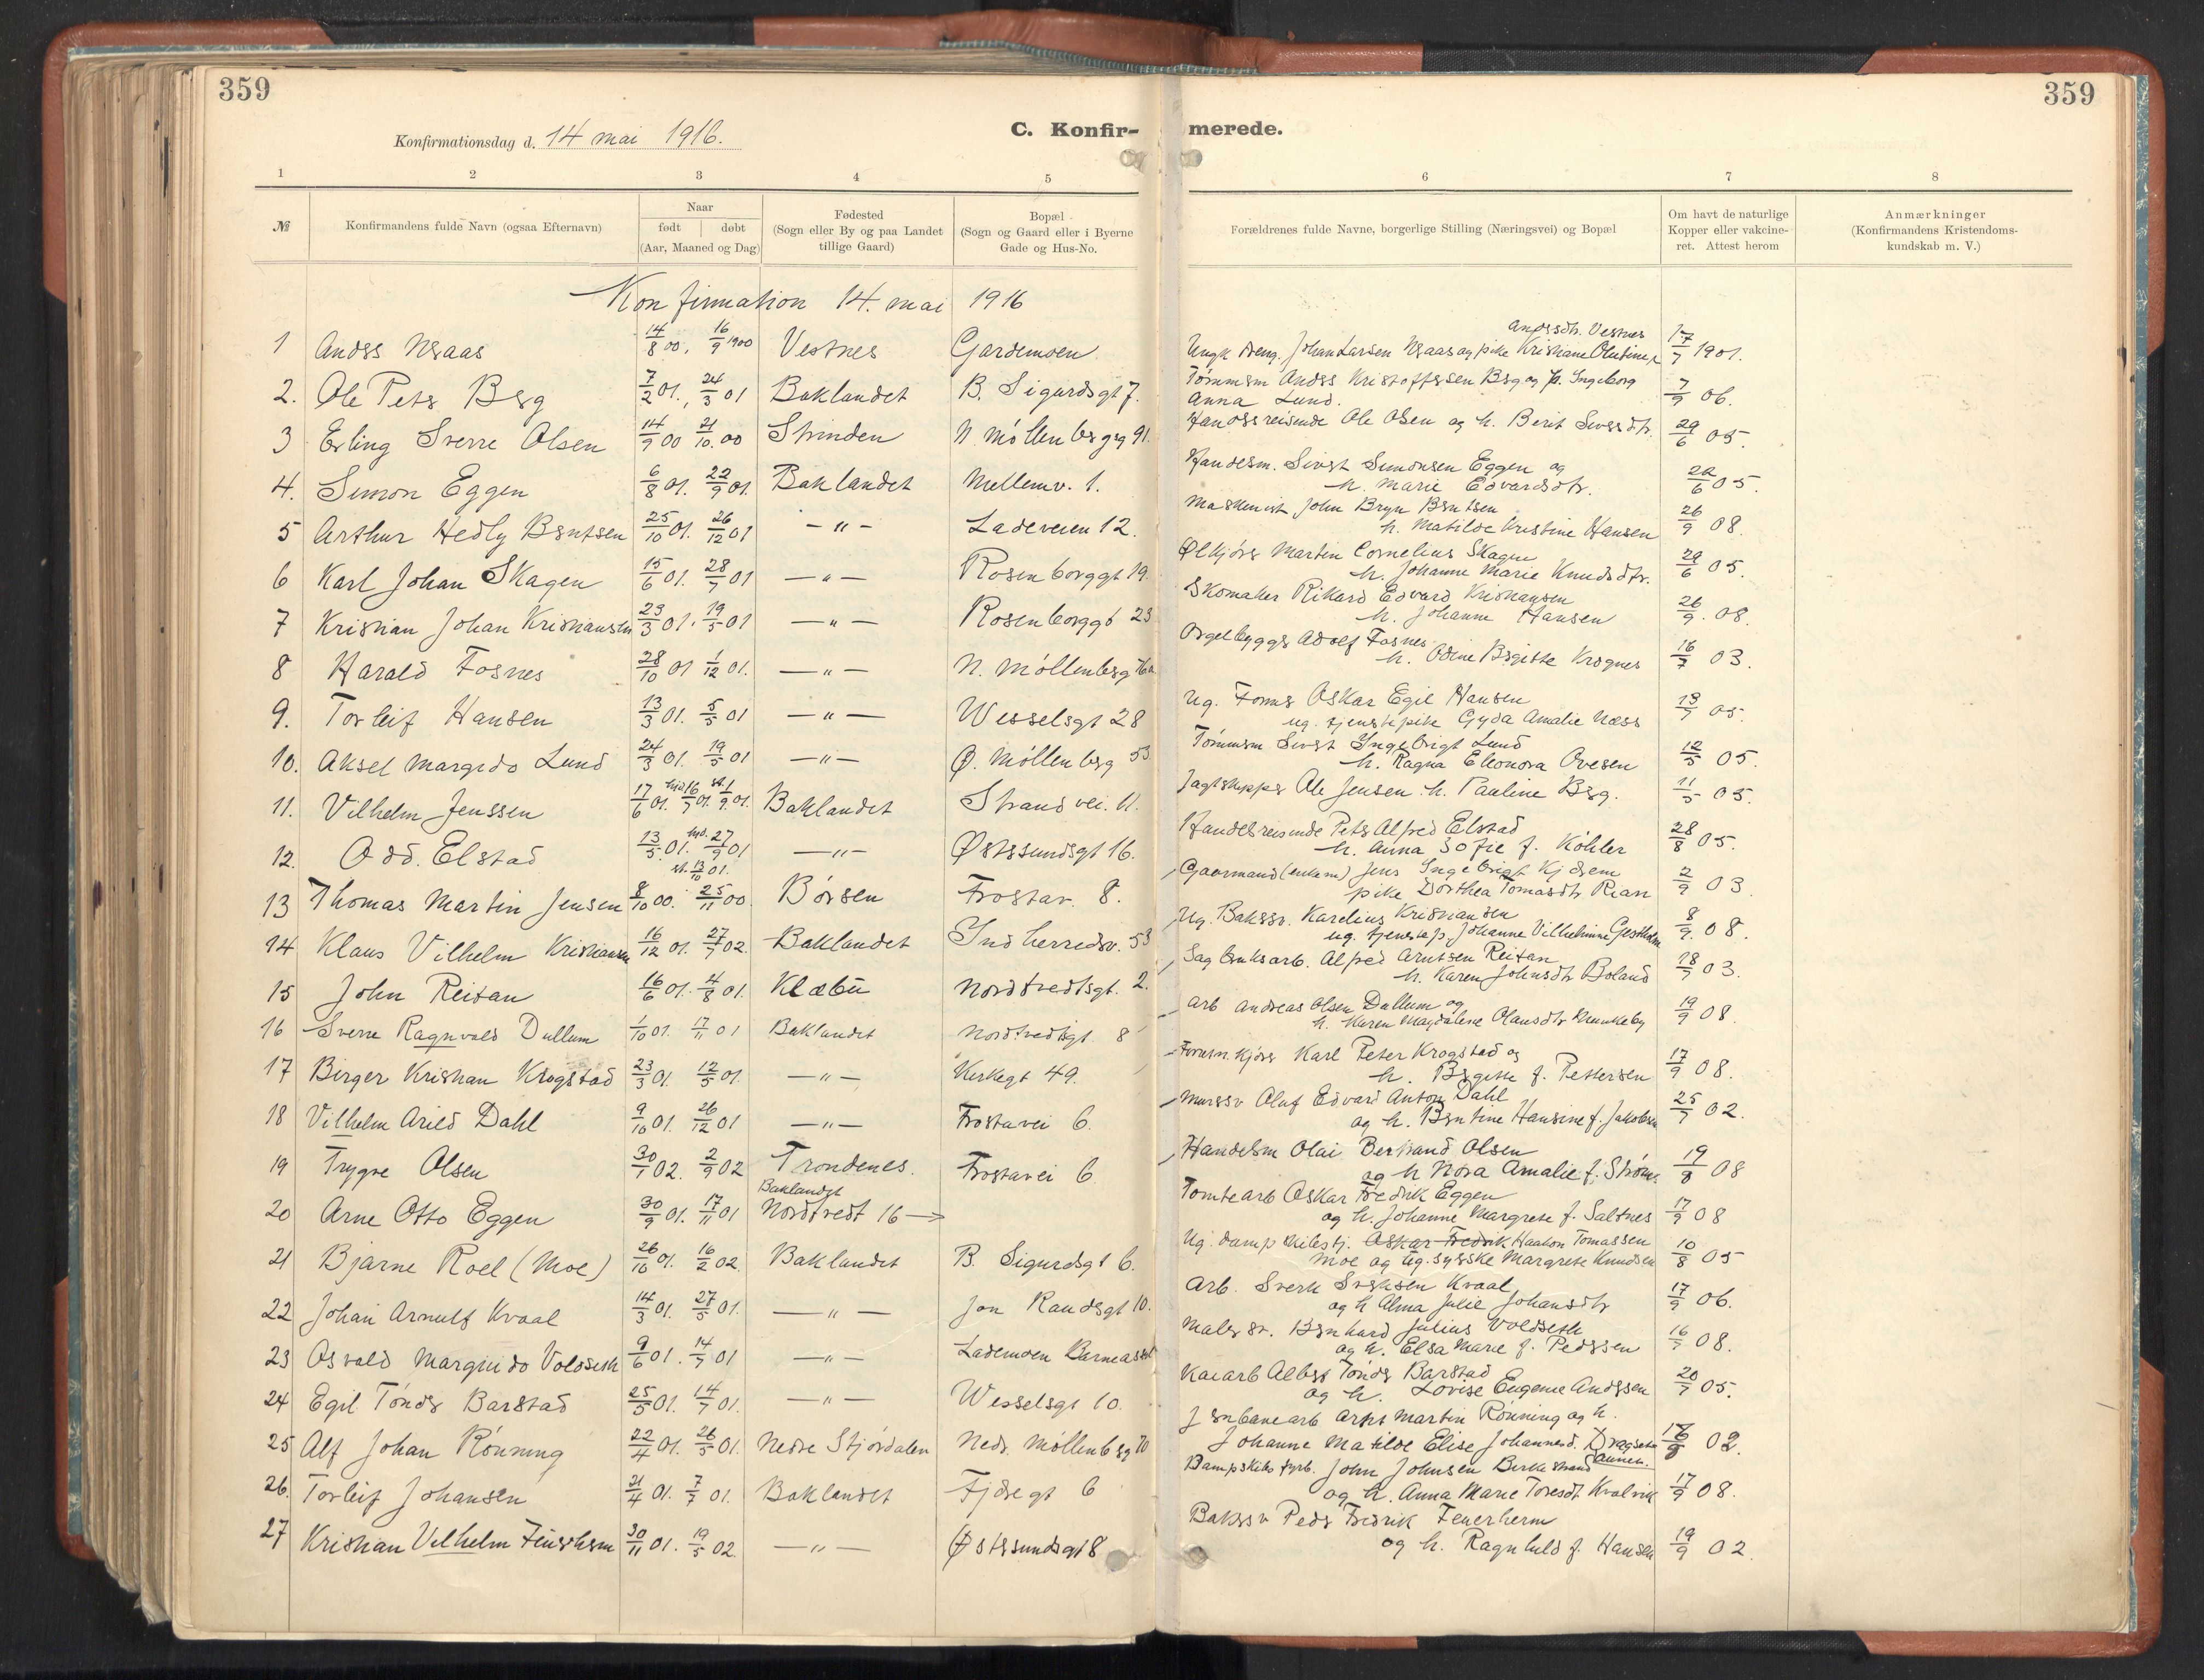 359
359
Konfirmationsdag d. 14 mai 1916.
C. Konfir-
merede.
1 2 3 4 5 6 7 8
№
Konfirmandens fulde Navn (ogsaa Efternavn)
Naar
født | døbt
(Aar, Maaned og Dag)
Fødested
(Sogn eller By og paa Landet
tillige Gaard)
Bopæl
(Sogn og Gaard eller i Byerne
Gade og Hus-No.
Forældrenes fulde Navne, borgerlige Stilling (Næringsvei) og Bopæl
Om havt de naturlige
Kopper eller vakcine-
ret. Attest herom
Anmærkninger
(Konfirmandens Kristendoms-
kundskab m. V.)
Konfirmation 14. mai 1916
Andssdtr. Vestnes
1 Anders 14/8 00, 16/9 1900 Vestnes Gardemoen Ungk. Johan Larsen og pike Kristiane Olestine 17/7 1901.
2. Ole Peter Berg 7/2 01., 24/3 01 Baklandet B. Sigurdsgt 7. Tømmerm Anders Kristoffersen Berg og h. Ingeborg
Anna Lund. 7/9 06.
3 Erling Sverre Olsen 14/9 00 21/10. 00 Strinden N. Møllenbergg 91. Handelsreisende Ole Olsen og h. Berit Siversdtr. 29/6 05.
4. Simon Eggen 6/8 01. 22/9 01. Baklandet Mellemv. 1. Handelsm. Sivert Simonsen Eggen og
h. Marie Edvardsdtr. 22/6 05.
5 Arthur Hedly Berntsen 25/10 01. 26/12 01 — " — Ladeveien 12. Maskinist John Bryn Berntsen
h. Matilde Kristine Hansen 26/9 08.
6 Karl Johan Skagen 15/6 01. 28/7 01 — " — Rosenborggt 19. Ølkjører Martin Cornelius Skagen
h. Johanne Marie Knudsdtr. 29/6 05.
7 Kristian Johan Kristiansen 23/3 01. 19/5 01 — " — Rosenborggt 23 Skomaker Rikard Edvard Kristiansen
h. Johanne Hansen 26/9. 08.
8 Harald Fosnes 28/10 01 1/12 01. — " — N. Møllenberg 76a Orgelbygger Adolf Fosnes
h. Odine Bergitte Krognes 16/7 03.
9. Torleif Hansen 13/3 01. 5/5 01 — " — Wesselsgt 28 Ug. Former Oskar Egil Hansen
ug. tjenstepike Gyda Amalie Næss 13/7 05.
10. Aksel Margido Lund 24/3 01. 19/5 01 — " — Ø. Møllenberg 53 Tømmerm Sivert Ingebrigt Lund
h. Ragna Eleonora Ovesen 12/5 05.
11. Vilhelm Jenssen 17/6 01. hjd. 16/7 01. st. 1/9 01. Baklandet Strandvei. 11. Jagtskipper Ole Jensen h. Pauline Berg. 11/5 05.
12. Odd. Elstad 13/5 01. hjd. 27/9 01 st. 13/10 01. — " — Østersundsgt 16. Handelsreisende Peter Alfred Elstad
h. Anna Sofie f. Köhler 28/8 05.
13 Thomas Martin Jensen 8/10 00. 25/11 00. Børsen Frostav. 8. Gaardmand (enkem) Jens Ingebrigt
pike Dorthea Tomasdtr Rian 2/9 03.
14 Klaus Vilhelm Kristiansen 16/12 01. 27/7 02. Baklandet Indherredsv. 53 Ug. Bakersv. Karelius Kristiansen
ug. tjenestep. Johanne Vilhelmine 8/9. 08.
15 John Reitan 16/6 01. 4/8 01. Klæbu Nordtvedtsgt. 2. Sagbruksarb. Alfred Arntsen Reitan
h. Karen Johnsdtr Boland 18/7 03.
16 Sverre Ragnvald Dullum 1/10 01. 17/11 01 Baklandet Nordtvedtsgt 8 Arb Andreas Olsen Dullum og
h. Karen Magdalene Olausdtr Munkeby 19/9 08.
17 Birger Kristian Krogstad 23/3 01. 12/5 01. — " — Kirkegt 49. Karl Peter Krogstad og
h. Bergitte f. Pettersen 17/9 08.
18 Vilhelm Arild Dahl 9/10 01. 26/12 01 — " — Frostavei 6. Murersv Oluf Edvard Anton Dahl
og h. Berntine Hansine f. Jakobsen 25/7 02.
19 Trygve Olsen 30/1 02. 2/9 02 Trondenes. Frostavei 6. Handelsm Olai Bertrand Olsen
og h Nora Amalie f. Strøm. 19/8 08
20 Arne Otto Eggen 30/9 01. 17/11 01 Baklandet
Nordtvedt 16 → Tomtearb Oskar Fredrik Eggen
og h. Johanne Margrete f. Saltnes 17/9 08
21 Bjarne Roel (Moe) 26/10 01. 16/2 02. Baklandet B. Sigurdsgt 6. Ug. dampskibstj. Oskar Fredrik Haakon Tomassen
Moe og ug. syerske Margrete Knudsen 10/8 05
22 Johan Arnulf Kvaal 14/3 01. 27/5 01. — " — Jon Raudsgt 10. Arb. Sverk Kvaal
og h Alma Julie Johansdtr 17/9 06.
23 Osvald Margido Voldseth 9/6 01. 14/7 01 — " — Lademoen Barneasyl Maler sv. Bernhard Julius Voldseth
og h. Elsa Marie f. Pedersen 16/7 08.
24 Egil Tønder Barstad 25/5 01. 14/7 01. — " — Wesselsgt 10. Kaiarb Albert Tønder Barstad
og h. Lovise Eugenie Anderssen 20/7 05.
25 Alf Johan Rönning 22/4 01. 26/5 01. Nedre Stjørdalen Nedr. Møllenberg 70 Jernbanearb Martin Rönning og h.
Johanne Matilde Elise Johannesd. Dragseth 16/8 02.
26. Torleif Johansen 21/4 01. 7/7 01. Baklandet Fjæregt 6 Dampskibs fyrb. John Johnsen Berkestrand
og h. Anna Marie Toresdt Kvalvik 17/9 08.
27 Kristian Vilhelm Feuerherm 30/11 01. 19/5 02. — " — Østersundsgt 8 Bakersv Peder Fredrik Feuerherm
og h. Ragnhild f. Hansen 19/9 02.